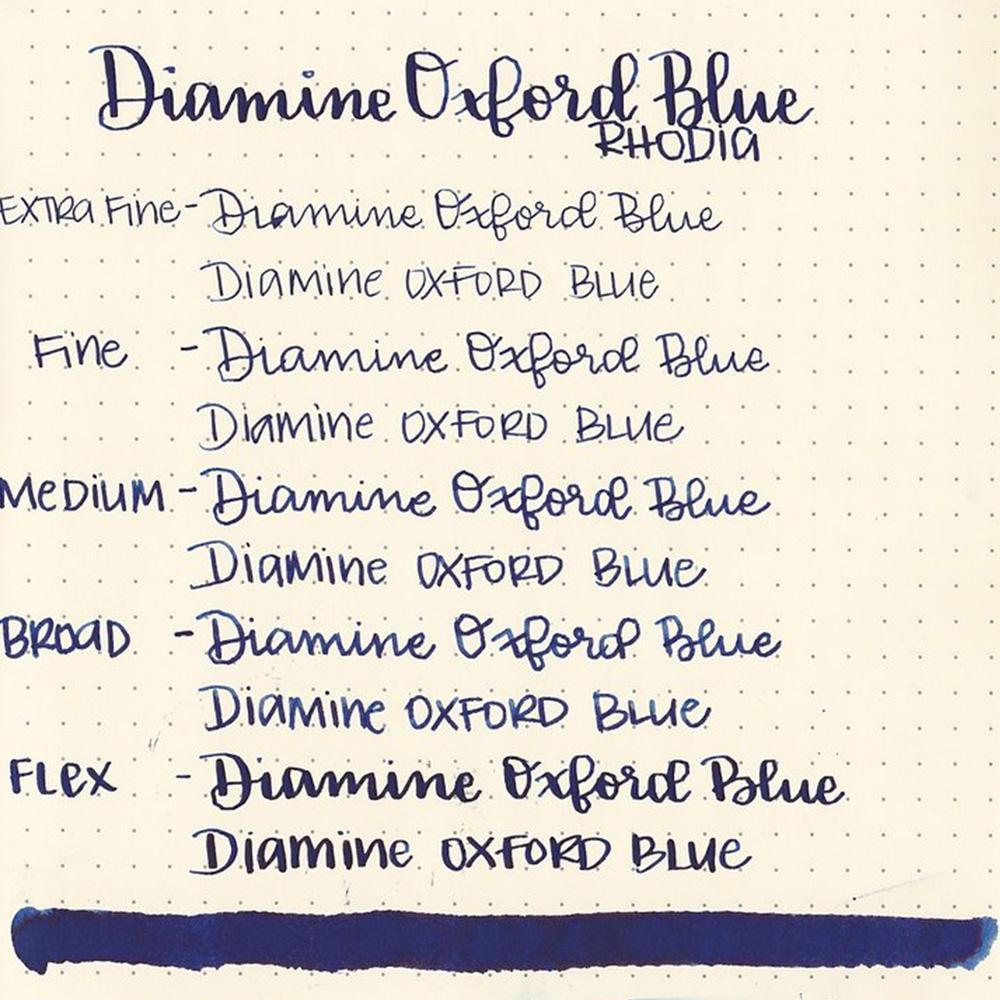 Diamine Oxford Blue
RHODIA
EXTRA Fine - Diamine Oxford Blue
Diamine OXFORD BLUE
Fine - Diamine Oxford Blue
Diamine OXFORD BLUE
MEDIUM - Diamine Oxford Blue
Diamine OXFORD BLUE
BROAD - Diamine Oxford Blue
Diamine OXFORD BLUE
FLEX - Diamine Oxford Blue
Diamine OXFORD BLUE